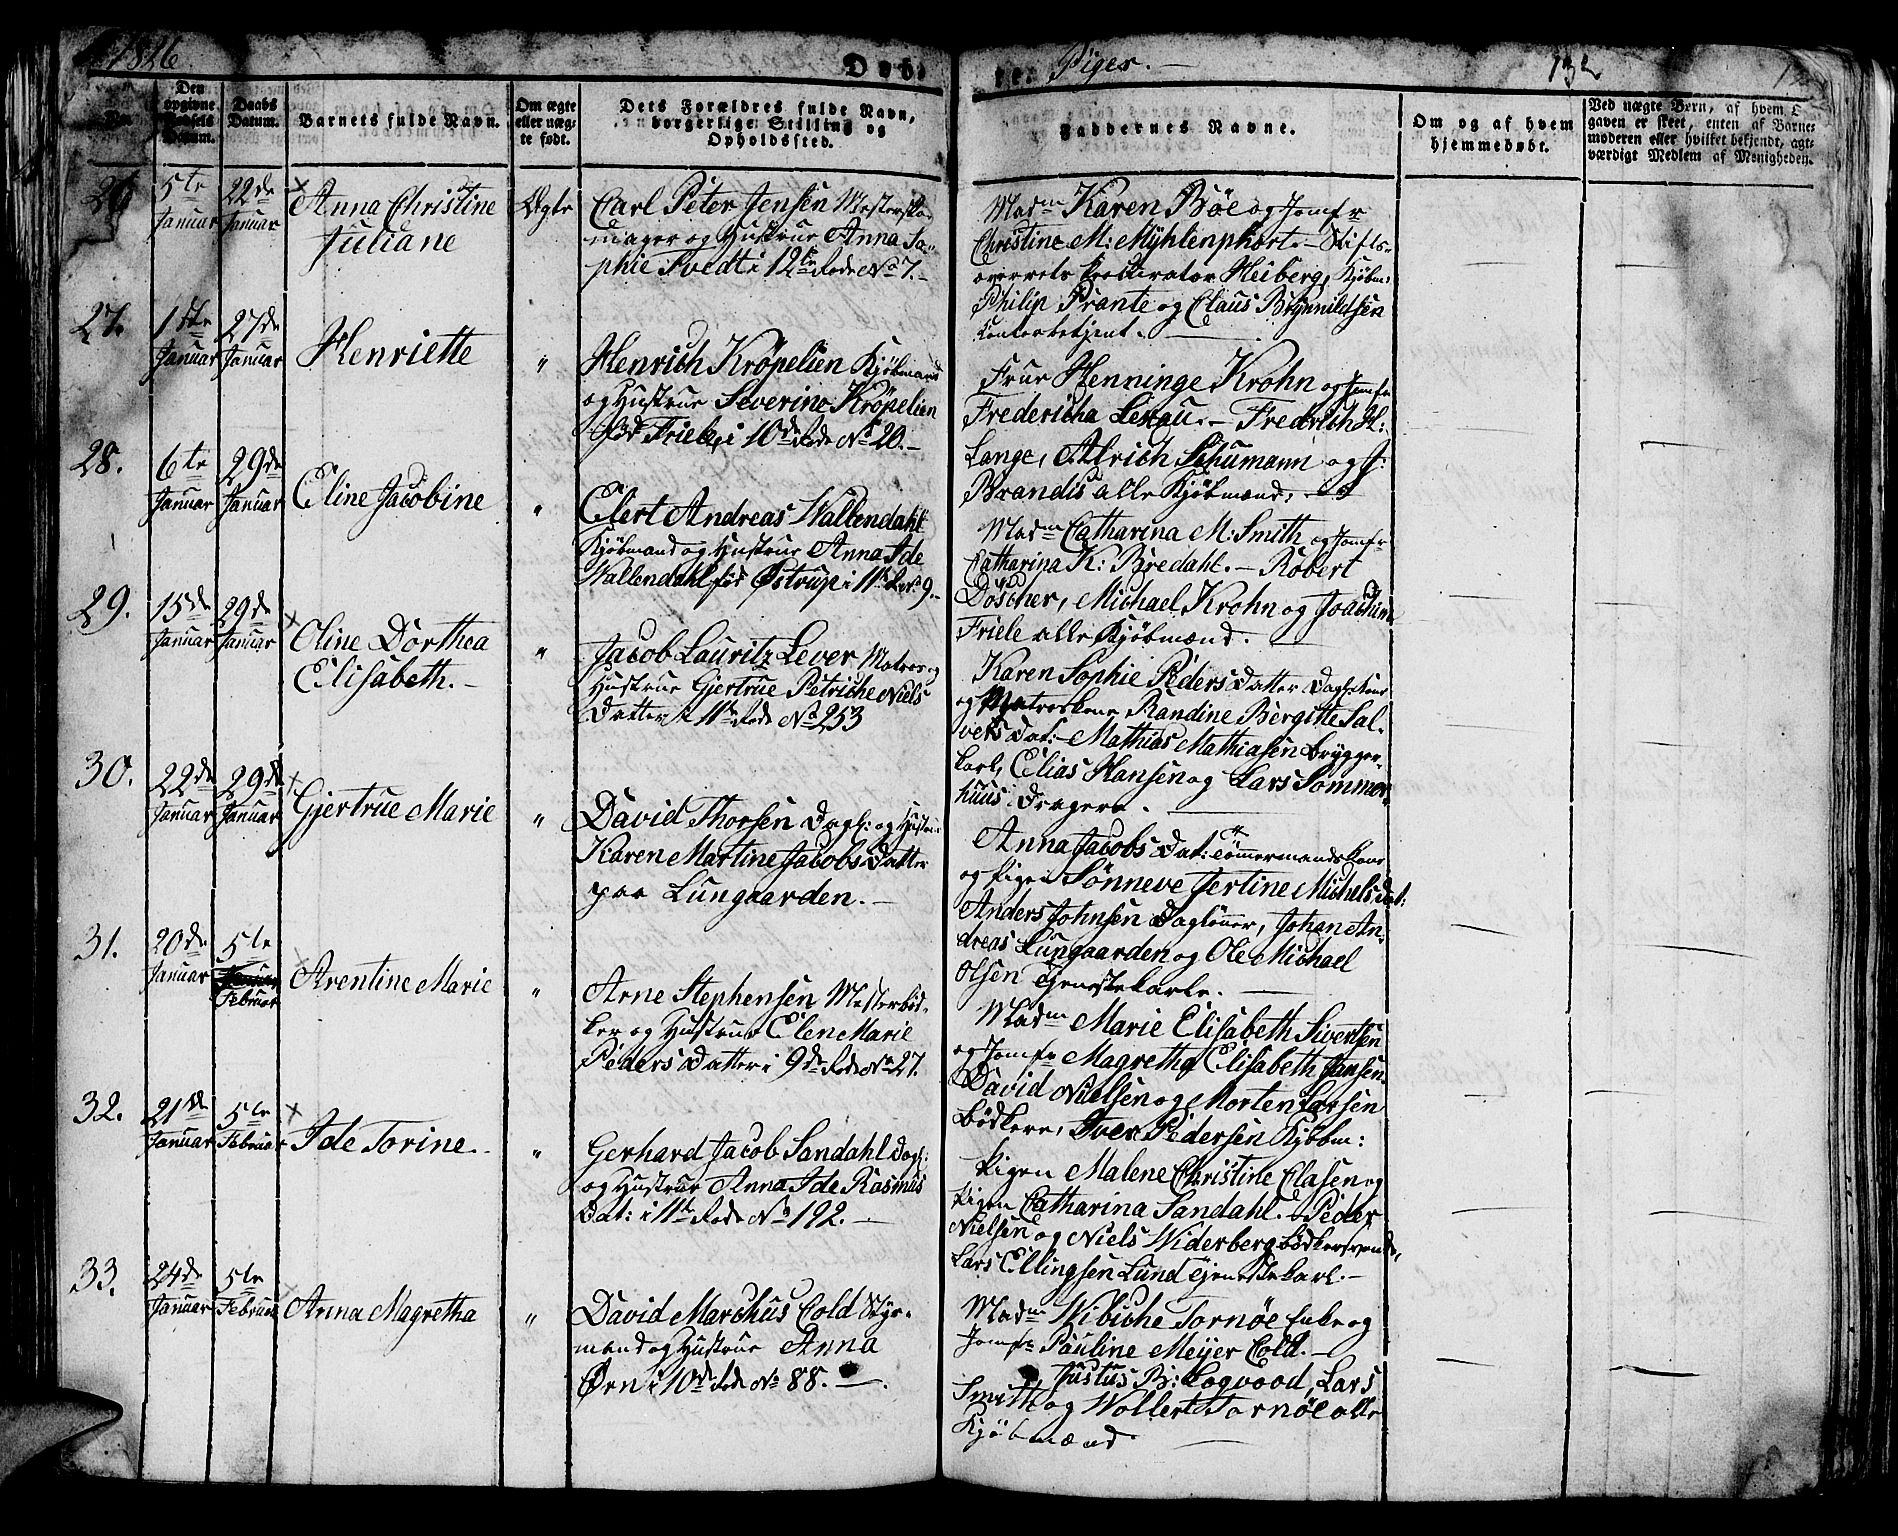 1826.
Døb-
te: Piger. -
132
No.
Den opgivne Fødsels Datum.
Daabs Datum.
Barnets fulde Navn.
Om ægte eller uægte født.
Dets Forældres fulde Navn, borgerlige Stilling og Opholdssted.
Faddernes Navne.
Om og af hvem hjemmedøbt.
Ved uægte Børn, af hvem Opgaven er skeet, enten af Barnemoderen eller hvilket bekjendt, agtværdigt Medlem af Menigheden.
26.
5te Januar
22de Januar
Anna Christine
Juliane
Ægte
Carl Peter Jensen Mesterskomager
og Hustrue Anna Sophie
Svedt i 12te Rode No 7. -
Madm Karen Böe og Jomfr
Christine M: Mÿhlenphort. - Stifts-
overrets Prokurator Heiberg, Kjøbm:
Philip Prante og Claus Brÿnnildsen
Contorbetjent. -
27.
1ste Januar
27de Januar
Henriette
"
Henrich Kröpelien Kjøbmand
og Hustrue Severine Kröpelien
fød Friele, i 10de Rode No 20. -
Frue Henninge Krohn og Jomfr
Fredericha Lexau. - Fredrich H:
Lange, Alrich Schumann og J:
Brandis alle Kjøbmænd. -
28.
6te Januar
29de Januar
Eline Jacobine
"
Elert Andreas Wallendahl
Kjøbmand og Hustrue Anna Ide
Wallendahl fød Østrup i 11te Rode 9. -
Madm Catharina M: Smith og Jomfr
Catharina K: Bredahl. - Robert
Döscher, Michael Krohn og Joachim
Friele alle Kjøbmænd.
29.
15de Januar
29de Januar
Oline Dorthea
Elisabeth. -
"
Jacob Lauritz Lever Matros og
Hustrue Gjertrue Petriche Niels
Datter i 11te Rode No 253
Karen Sophie Peders Datter Dagl:kone
og Matroskone Randine Bergitte Sal-
vers Dat: - Mathias Mathiasen Brygger-
karl, Elias Hansen og Lars Sommer-
huus Dragere. -
30.
22de Januar
29de Januar
Gjertrue Marie
"
David Thorsen Dagl: og Hustrue
Karen Martine Jacobs Datter
paa Lungaarden. -
Anna Jacobs Dat: Tömmermandskone
og Pigen Sönneve Jertine Michels Dat:
Anders Johnsen Daglönner, Johan An-
dreas Lungaarden og Ole Michael
Olsen Tjenestekarle. -
31.
20de Januar
5te Februar
Arentine Marie
"
Arne Stephensen Mesterbød-
ker og Hustrue Elen Marie
Peders Datter i 9de Rode No 27.
Madm Marie Elisabeth Sivertsen
og Jomfr Magretha Elisabeth Jansen.
David Nielsen og Morten Larsen
Bødkere, Iver Pedersen Kjøbm:
32.
21de Januar
5te Februar
Ide Torine. -
"
Gerhard Jacob Sandahl Dagl:
og Hustrue Anna Ide Rasmus
Dat: i 11te Rode No 192. -
Pigen Malene Christine Clasen og
Pigen Catharina Sandahl. - Peder
Nielsen og Niels Widerberg Bødkersvende,
Lars Ellingsen Lund Tjenestekarl. -
33.
24de Januar
5te Februar
Anna Magretha
"
David Marchus Cold Styr-
mand og Hustrue Anna
Örn i 10de Rode No 88. -
Madm Wibiche Tornöe Enke og
Jomfr Pauline Meÿer Cold. -
Justus B: Logvood, Lars
Smith og Wollert Tornöe alle
Kjøbmænd